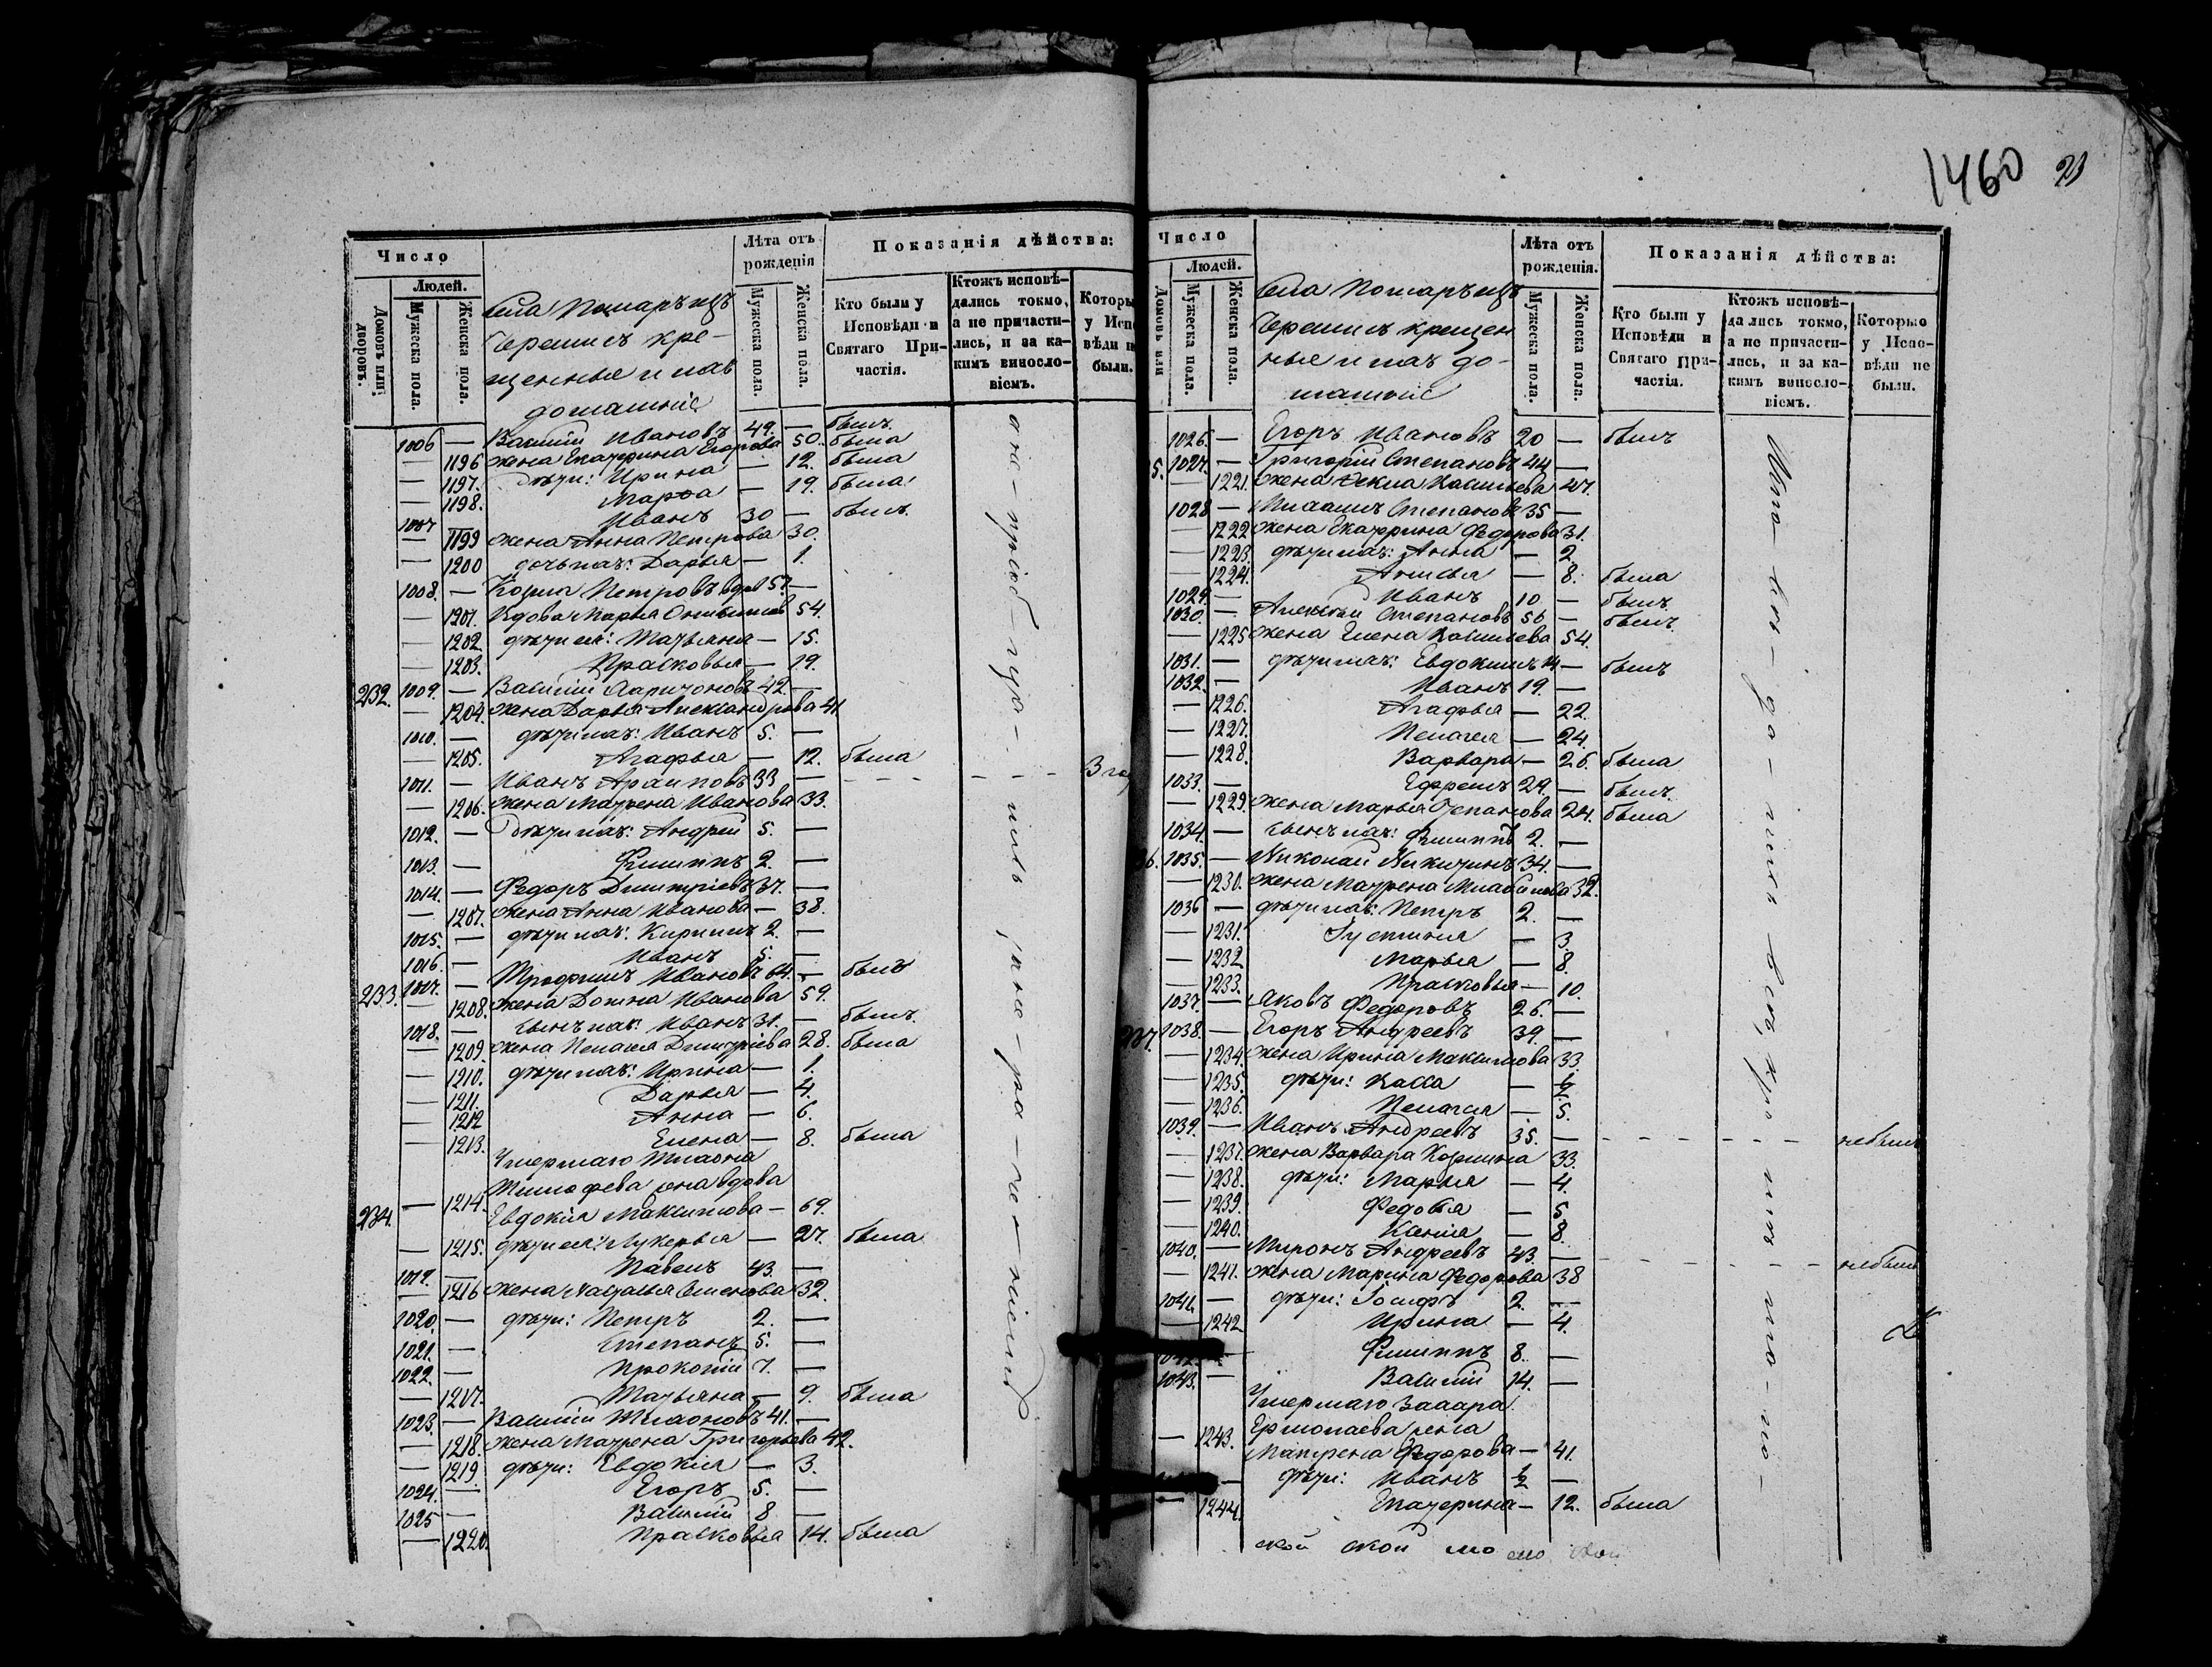 1460 21
Число
Людей.
Домовъ или дворовъ.
Мужеска пола.
Женска пола.
Села Пошаръ
Черемисъ кре-
щенные и ихъ
домашніе
Лѣта отъ рожденія
Мужеска пола.
Женска пола.
Показанія дѣйства:
Кто были у Исповѣди и Святаго Причастія.
Ктожъ исповѣдались токмо, а не причастились, и за какимъ винословіемъ.
Которы
у Исп
вѣди н
были.
1006 — Василій Ивановъ 49. — былъ
— 1196 жена Екатерина Егорова 50. была
— 1197. дѣти: Ирина — 12. была
— 1198. Марѳа — 19. была
1007 — Иванъ 30 — былъ
— 1199 жена Анна Петрова 30.
— 1200 дочь ихъ: Дарья — 1.
1008. — Козма Петровъ вдов 57. —
— 1201. Вдова Марья 54.
— 1202 дѣти ея: Татьяна — 15.
— 1203. Прасковья — 19.
232. 1009. — Василій Ларионовъ 42. —
— 1204. жена Дарья Александрова 41
1010. — дѣти ихъ: Иванъ 5. —
— 1205. Агафья — 12. была
1011. — Иванъ Архиповъ 33 —
— 1206. жена Матрена Иванова 33.
1012. — дѣти ихъ: Андрей 5. —
1013. — Филиппъ 2. —
1014. — Федоръ Дмитріевъ 37. —
— 1207. жена Анна Иванова — 38.
1015. — дѣти ихъ: Кирилъ 2. —
1016. — Иванъ 5. —
233. 1017. — Трофимъ Ивановъ 64. — былъ
— 1208. жена Домна Иванова 59.
1018. — сынъ ихъ: Иванъ 31. — былъ
— 1209. жена Пелагея Дмитріева 28. была
— 1210. дѣти ихъ: Ирина — 1.
— 1211. Дарья — 4.
— 1212 Анна — 6.
— 1213. Елена — 8. была
Умершаго
Тимофеева жена вдова
234. — 1214. Евдокія Максимова — 69.
— 1215. дѣти ея: Лукерья — 27. была
1019. — Павелъ 43. —
— 1216 жена Наталья Семенова 32.
1020. — дѣти: Петръ 2. —
1021. — Степанъ 5. —
1022. — Прокопій 7. —
— 1217. Татьяна — 9. была
1023. — Василій 41. —
— 1218. жена Матрена Григорьева 42.
— 1219 дѣти: Евдокія — 3.
1024. — Егоръ 5. —
1025 — Василій 8 —
— 1220. Прасковья 14. была
Число
Людей.
Домовъ или
Мужеска пола.
Женска пола.
Села Пошаръ
Черемисъ крещен
ные и ихъ до-
машніе
Лѣта отъ рожденія.
Мужеска пола.
Женска пола.
Показанія дѣйства:
Кто были у Исповѣди и Святаго Причастія.
Ктожъ исповѣдались токмо, а не причастились, и за какимъ винословіемъ.
Которыю у Исповѣди не были.
1026. — Егоръ Ивановъ 20 — былъ
5. 1027. — Григорій Степановъ 44 —
— 1221. жена Фекла Васильева 47.
1028 — Михаилъ Степановъ 35 —
— 1222 жена Екатерина Федорова 31.
— 1223. дѣти ихъ: Анна — 2
— 1224. Анисья — 8. была
1029. — Иванъ 10 — былъ
1030. — Алексѣй Степановъ 56 — былъ
— 1225 жена Елена Васильева 54.
1031. — дѣти ихъ: Евдокимъ 14 — былъ
1032. — Иванъ 19. —
— 1226. Агафья — 22.
— 1227. Пелагея — 24.
— 1228. Варвара — 26. была
1033. — Ефремъ 29. — былъ
— 1229. жена Марья Степанова 24. была
1034. — сынъ ихъ: Филиппъ 2. —
36. 1035. — Николай Никитинъ 34. —
— 1230. жена Матрена 32.
1036 — дѣти ихъ: Петръ 2. —
— 1231. Іустинія — 3.
— 1232 Марья — 8.
— 1233. Прасковья — 10.
1037. — Яковъ Федоровъ 26. —
237. 1038. — Егоръ Андреевъ 39. —
— 1234. жена Ирина Максимова 33.
— 1235. дѣти: Васса — ½
— 1236. Пелагея — 5.
1039. — Иванъ Андреевъ 35. — небылъ
— 1237. жена Варвара Козмина 33.
— 1238. дѣти: Марья — 4.
— 1239. Федосья — 5.
— 1240. Ксенія — 8.
1040. — Миронъ Андреевъ 43. — небылъ
— 1241. жена Марина Федорова 38
1041. — дѣти: Іосифъ 2. —
— 1242 Ирина — 4.
1042. — Филиппъ 8. —
1043. — Василій 14. —
Умершаго Захара
Ермолаева жена
— 1243. Матрена Федорова — 41.
— дѣти: Иванъ ½ —
— 1244. Екатерина — 12. была